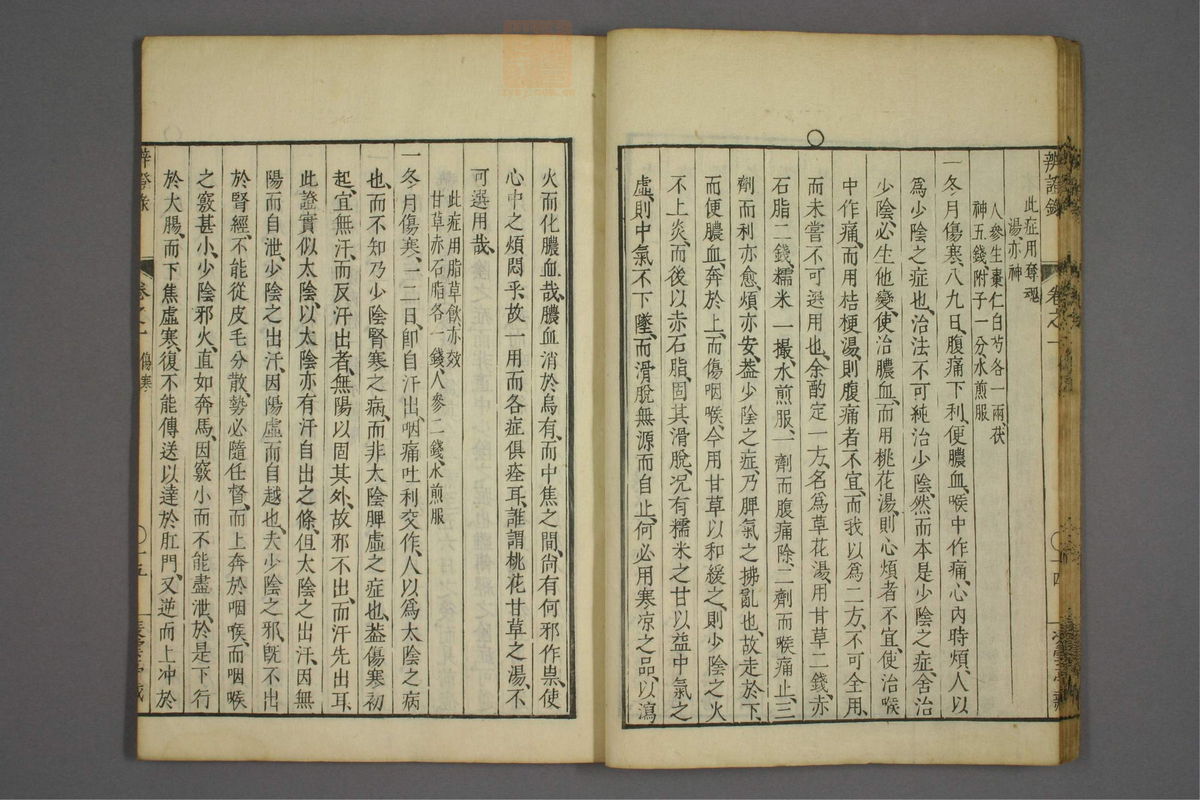 辨證錄 卷之一
此症用奪魂
湯亦神
人參生棗仁白芍各一兩茯
神五錢附子一分水煎服
一冬月傷寒八九日腹痛下利便膿血喉中作痛心內時煩人以
爲少陰之症也治法不可純治少陰然而本是少陰之症舍治
少陰必生他變使治膿血而用桃花湯則心煩者不宜使治喉
中作痛而用桔梗湯則腹痛者不宜而我以爲二方不可全用
而未嘗不可選用也余酌定一方名爲草花湯用甘草二錢赤
石脂二錢糯米一撮水煎服一劑而腹痛除二劑而喉痛止三
劑而利亦愈煩亦安葢少陰之症乃脾氣之拂亂也故走於下
而便膿血奔於上而傷咽喉今用甘草以和緩之則少陰之火
不上炎而後以赤石脂固其滑脫况有糯米之甘以益中氣之
虛則中氣不下墜而滑脫無源而自止何必用寒凉之品以瀉
火而化膿血哉膿血消於烏有而中焦之間尙有何邪作祟使
心中之煩悶乎故一用而各症俱痊耳誰謂桃花甘草之湯不
可選用哉
此症用脂草飲亦效
甘草赤石脂各一錢人參二錢水煎服
一冬月傷寒一二日卽自汗出咽痛吐利交作人以爲太陰之病
也而不知乃少陰腎寒之病而非太陰脾虛之症也葢傷寒初
起宜無汗而反汗出者無陽以固其外故邪不出而汗先出耳
此證實似太陰以太陰亦有汗自出之條但太陰之出汗因無
陽而自泄少陰之出汗因陽虛而自越也夫少陰之邪旣不出
於腎經不能從皮毛分散勢必隨任督而上奔於咽喉而咽喉
之竅甚小少陰邪火直如奔馬因竅小而不能盡泄於是下行
於大腸而下焦虛寒復不能傳送以達於肛門又逆而上冲於
辨證錄 卷之一 傷寒 十五